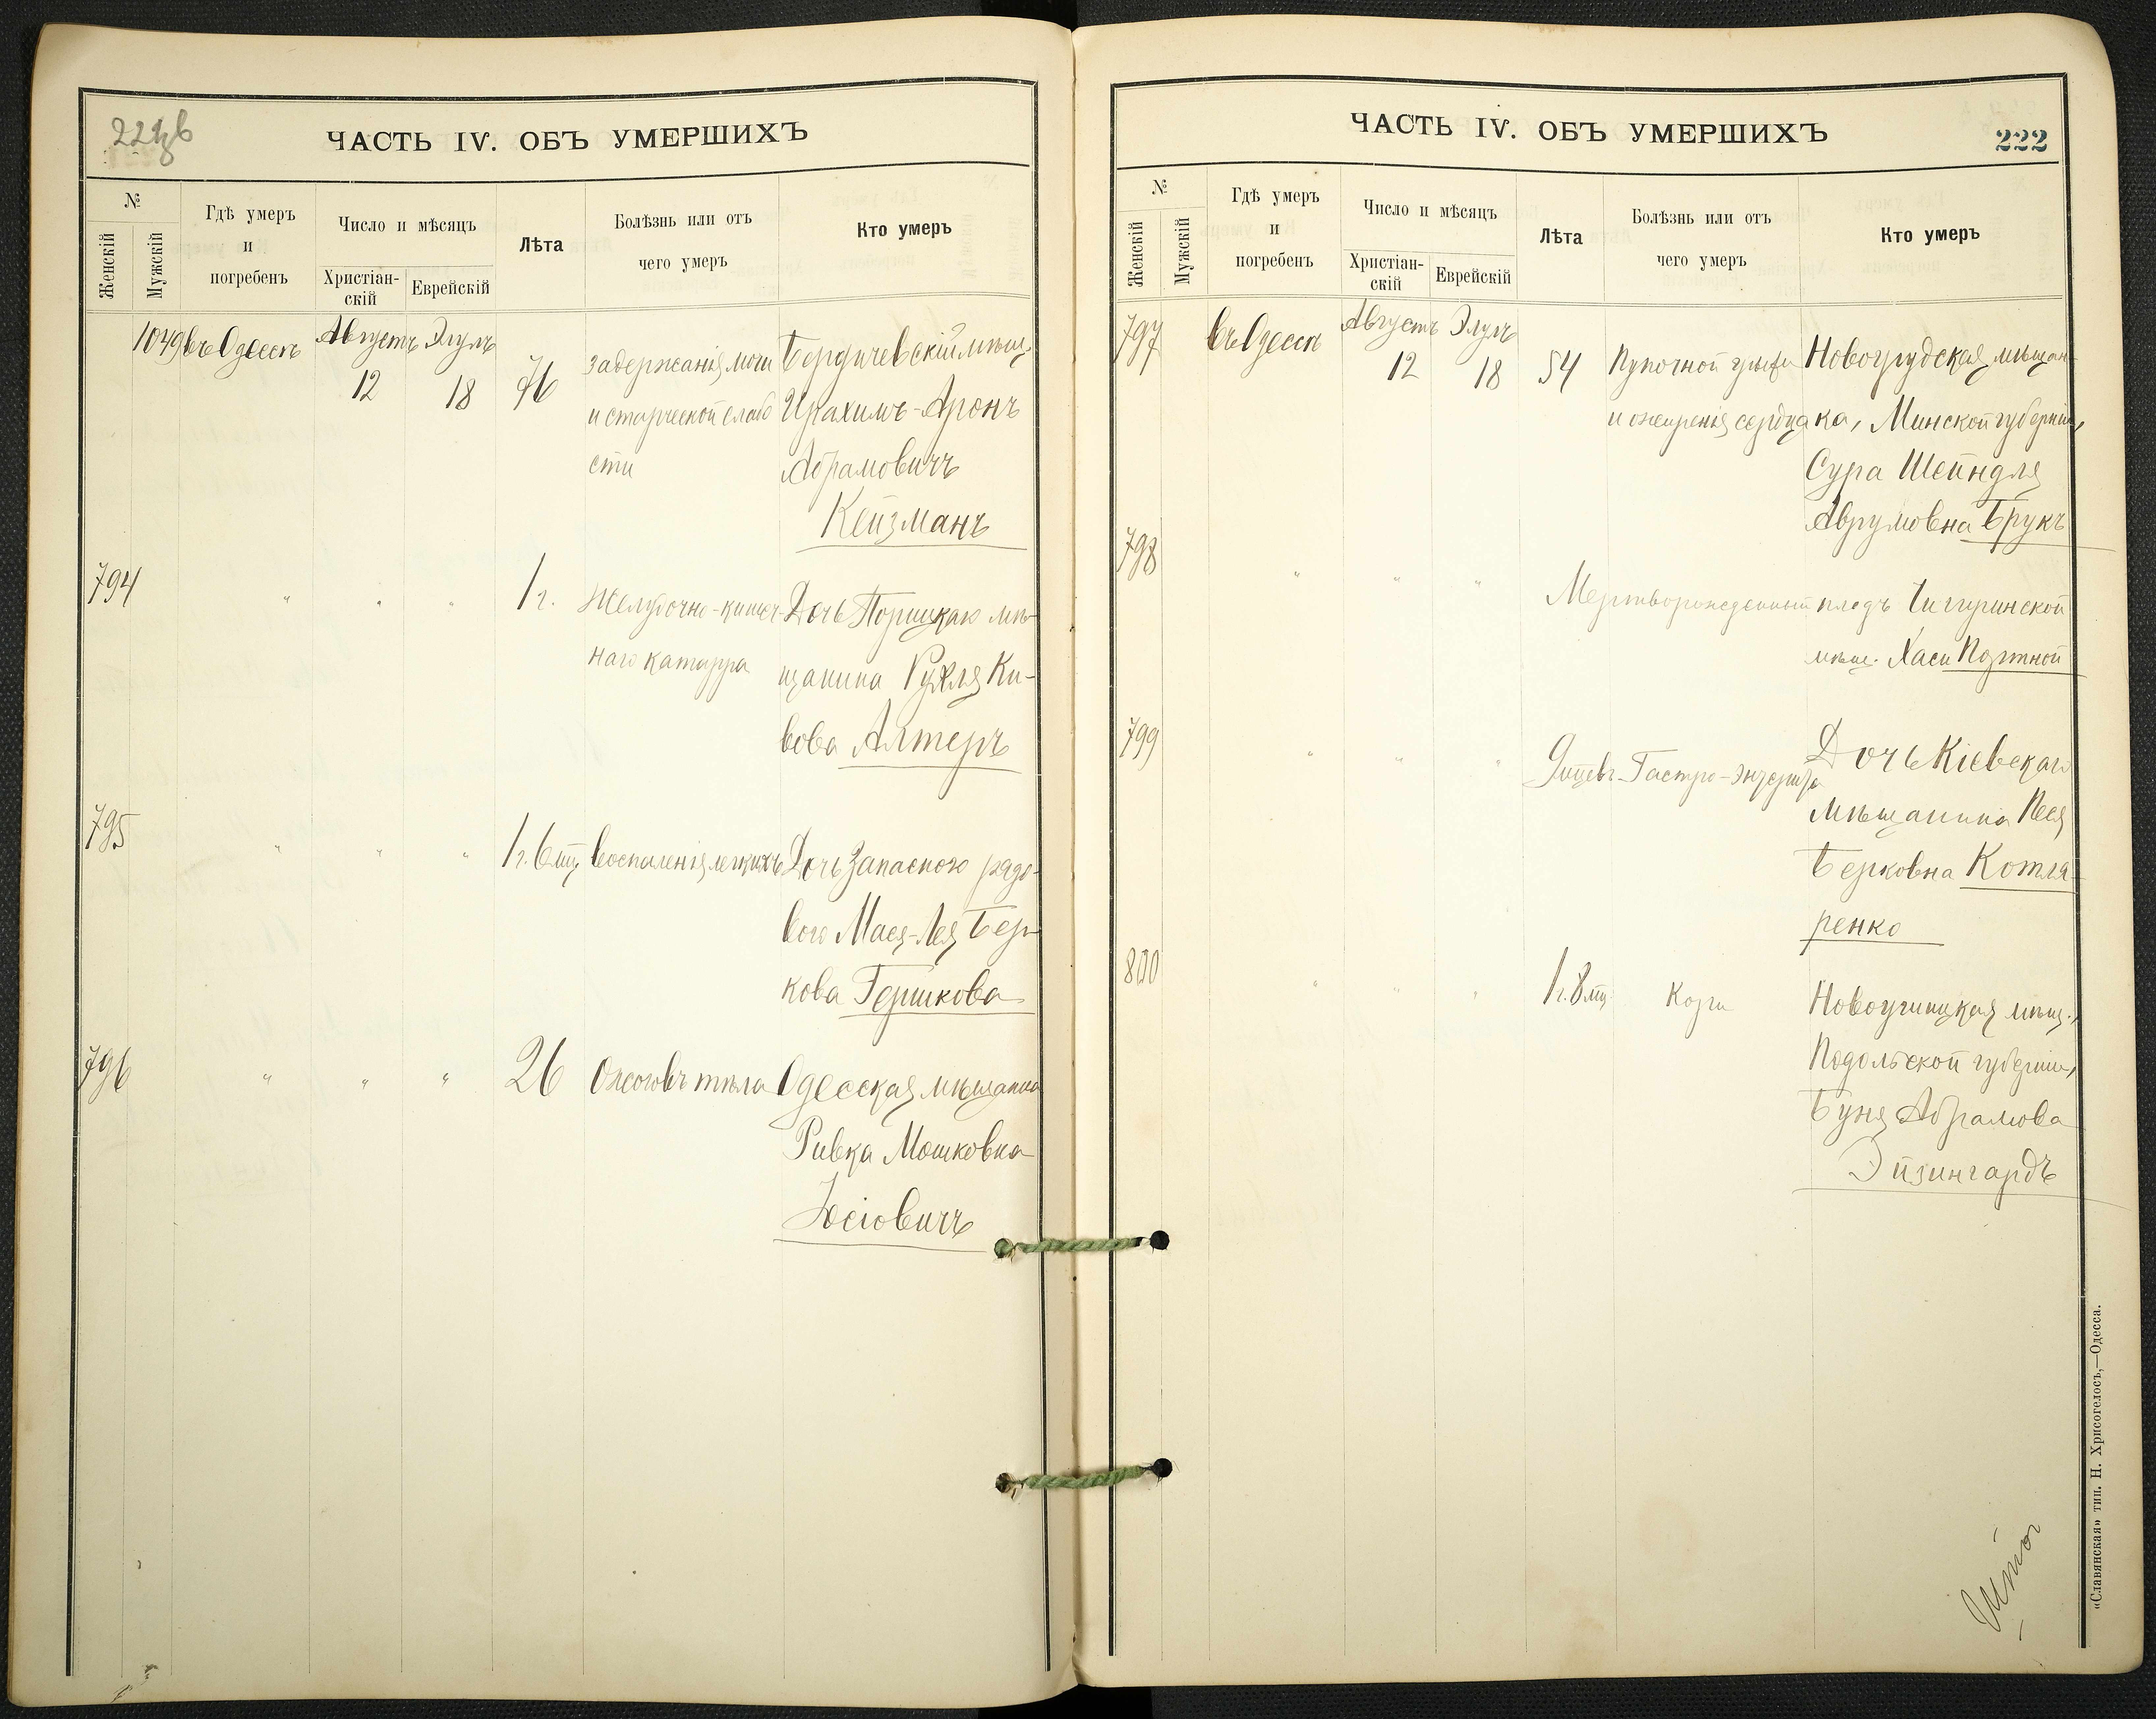 ЧАСТЬ IV. ОБЪ УМЕРШИХЪ
№
Женскій
Мужскій
Гдѣ умеръ
и
погребенъ
Число и мѣсяцъ
Христіан-
скій
Еврейскій
Лѣта
Болѣзнь или отъ
чего умеръ
Кто умеръ
1049 въ Одессѣ Августъ 12 Элулъ 18 76
задержанія мочи
и старческой слабо
сти
Бердичевскій мѣщ.
Ирахимъ-Аронъ
Абрамовичъ
Кейзманъ
794 " " " 1 г.
Желудочно-кишеч-
наго катарра
Дочь Порицкаго мѣ-
щанина Рухля Ки-
вова Алтеръ
795 " " " 1 г. 6 мц
воспаленія легкихъ
Дочь запасного рядо-
вого Мася-Лея Бер-
кова Гершкова
796 " " " 26
Ожоговъ тѣла
Одесская мѣщанка
Ривка Мошковна
Іосіовичъ
ЧАСТЬ IV. ОБЪ УМЕРШИХЪ
222
№
Женскій
Мужскій
Гдѣ умеръ
и
погребенъ
Число и мѣсяцъ
Христіан-
скій
Еврейскій
Лѣта
Болѣзнь или отъ
чего умеръ
Кто умеръ
797 въ Одессѣ Августъ 12 Элулъ 18 54
Пупочной грыжи
и ожиренія сердца
Новогрудская мѣщан-
ка, Минской губерніи,
Сура Шейндля
Аврумовна Брукъ
798 " " "
Мертворожденный плодъ Чигиринской
мѣщ. Хаси Портной
799 " " "
9 мцевъ Гастро-энтерита
Дочь Кіевскаго
мѣщанина Песя
Берковна Котля-
ренко
800 " " " 1 г. 8 мц
Кори
Новоушицкая мѣщ.,
Подольской губерніи,
Буня Абрамова
Эйзингардъ
Итого
«Славянская» тип. Н. Хрисогелосъ,—Одесса.